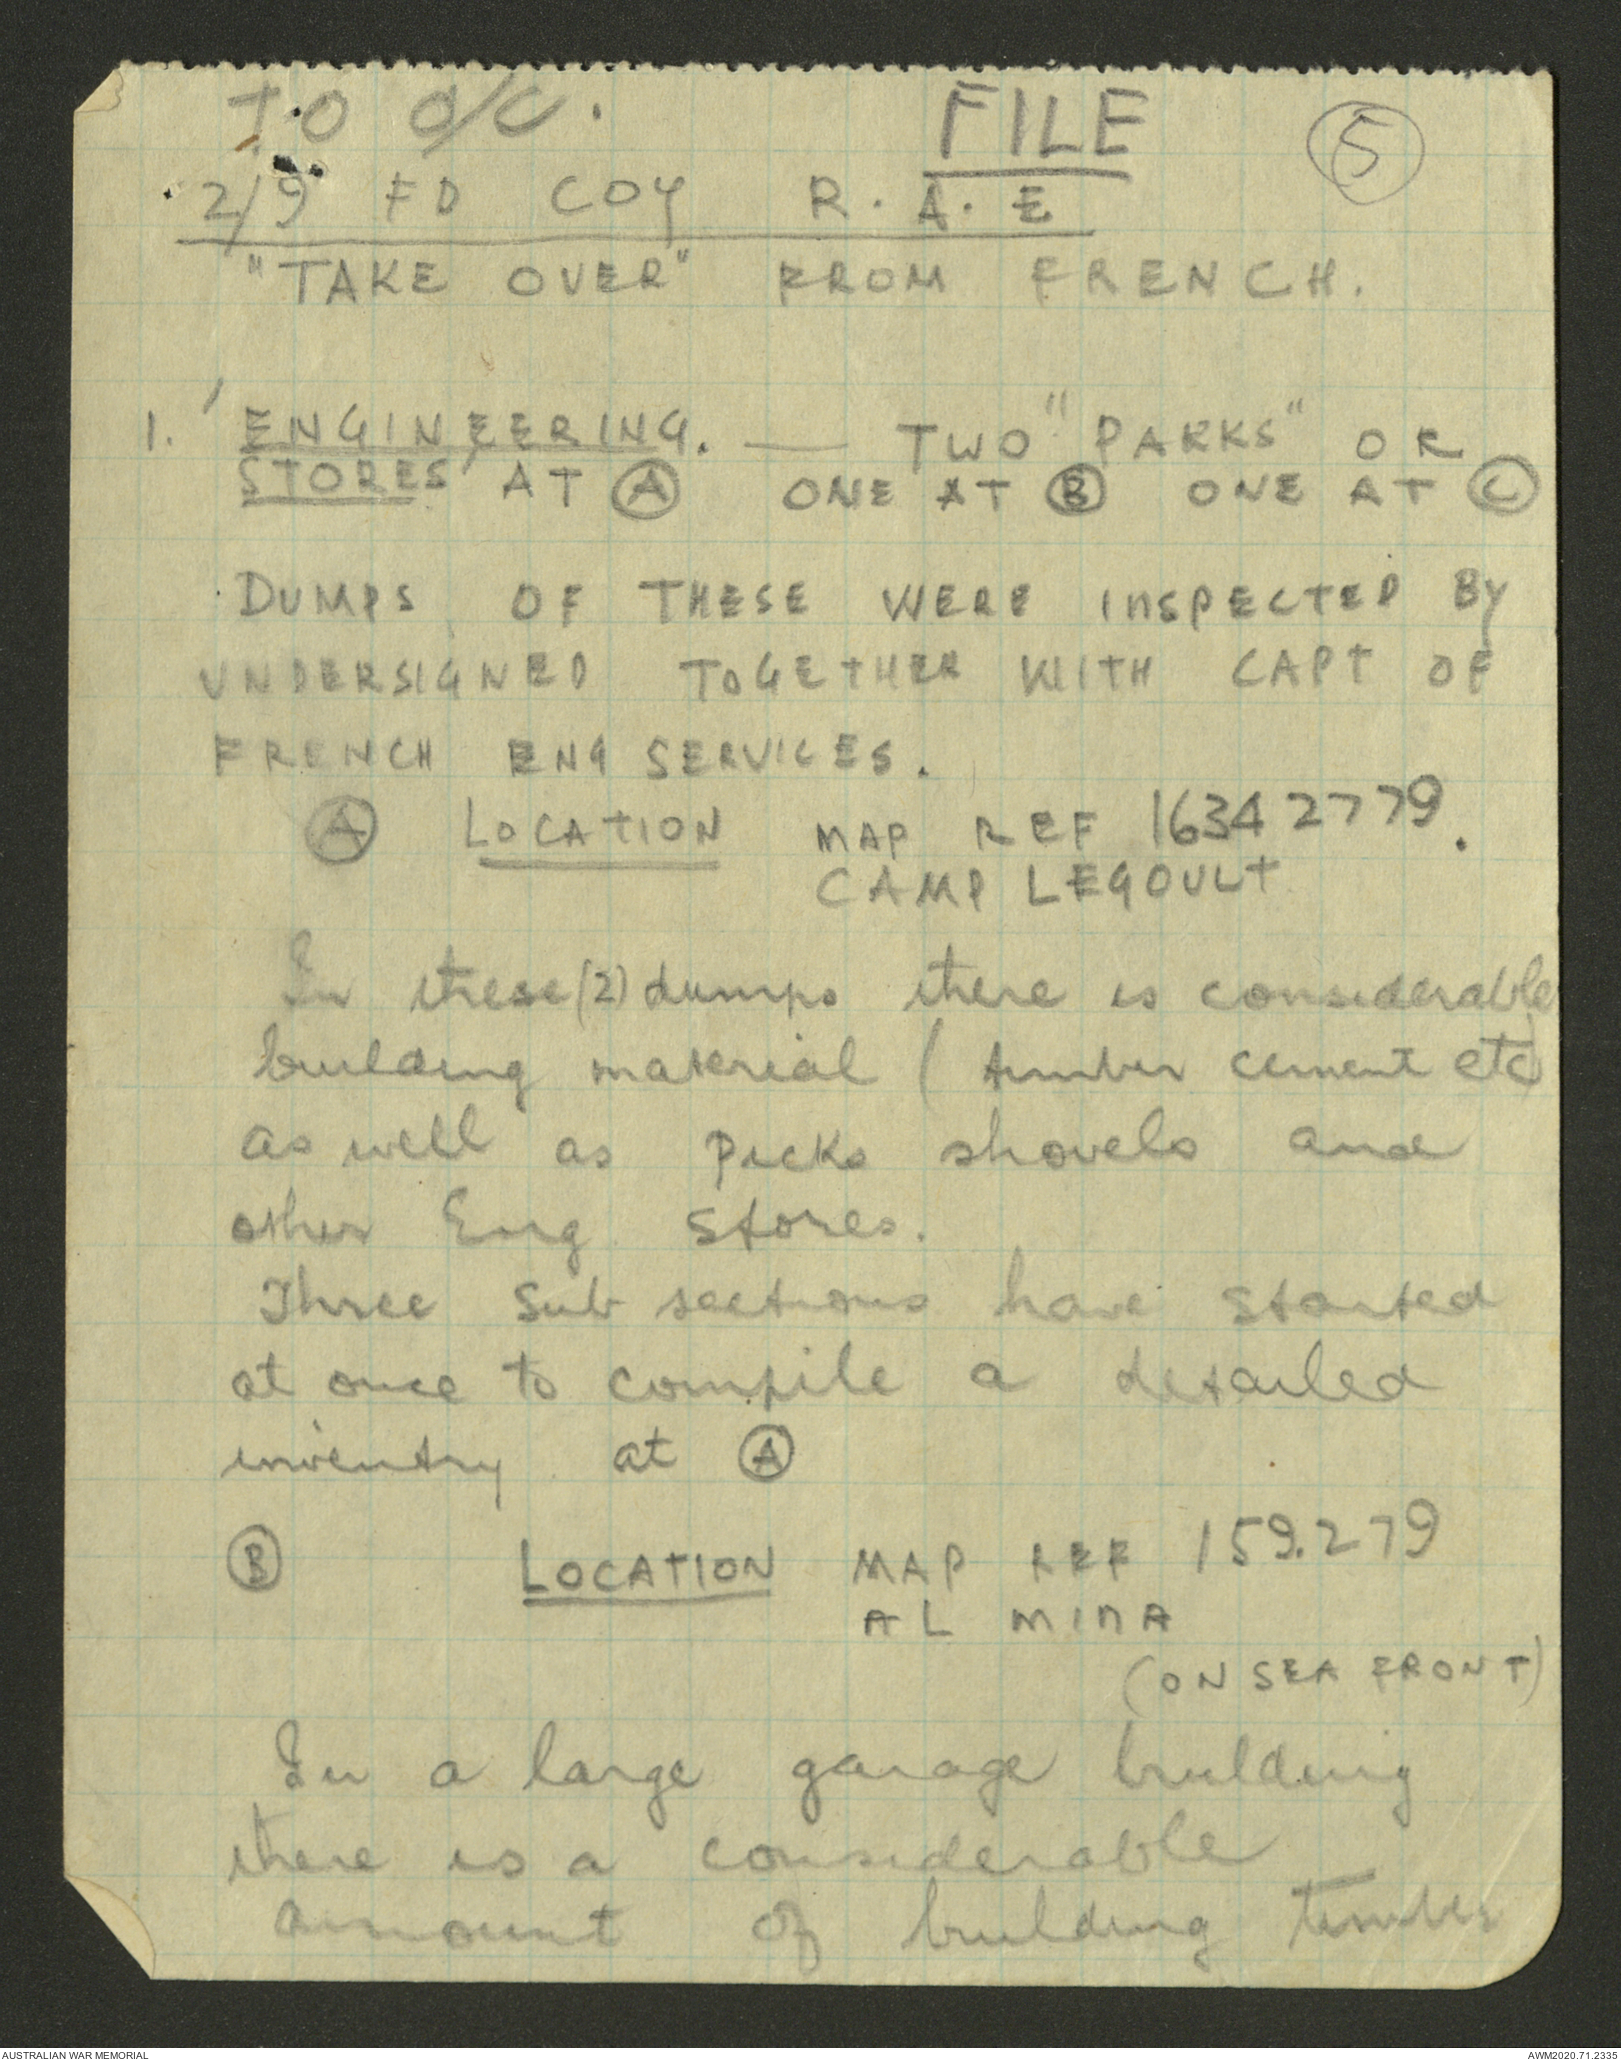 TO O/C. FILE 5
2/9 FD COY R.A.E
"TAKE OVER" FROM FRENCH.
1. 'ENGINEERING. — TWO "PARKS" OR
STORES' AT A ONE AT B ONE AT C
DUMPS OF THESE WERE INSPECTED BY
UNDERSIGNED TOGETHER WITH CAPT OF
FRENCH ENG SERVICES.
A LOCATION MAP REF 16342779.
CAMP LEGOULT
In these (2) dumps there is considerable
building material (timber cement etc)
as well as picks shovels and
other Eng stores.
Three Sub sections have started
at once to compile a detailed
inventory at A
B LOCATION MAP REF 159.279
AL MINA
(ON SEA FRONT)
In a large garage building
there is a considerable
amount of building timber
AUSTRALIAN WAR MEMORIAL AWM2020.71.2335